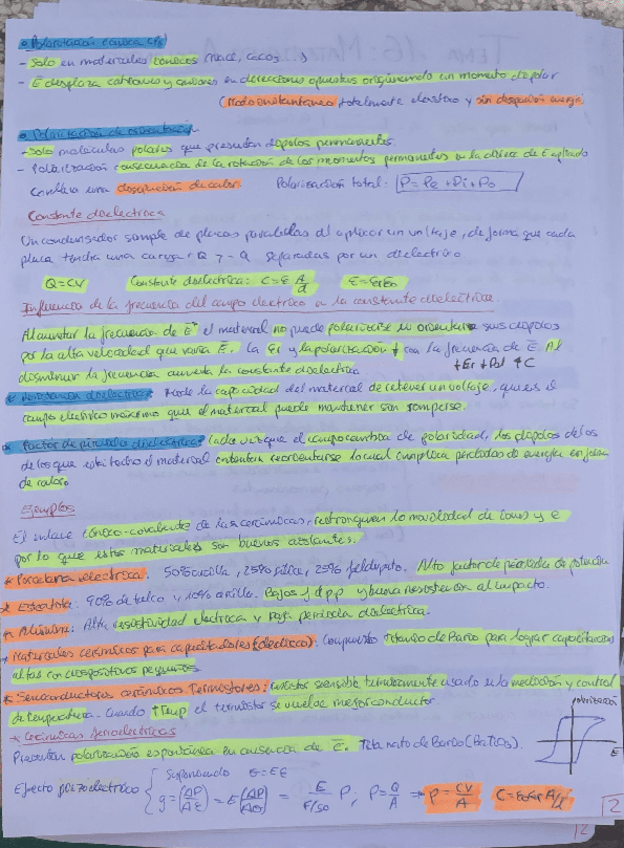 • Polarización iónica (Pi)
- Solo en materiales iónicos (NaCl, CaCO₃ ...)
- E desplaza cationes y aniones en direcciones opuestas originando un momento dipolar
(Modo instantáneo, totalmente elástico y sin disipación energ.
• Polarización de orientación
- Solo moléculas polares que presentan dipolos permanentes.
- Polarización consecuencia de la rotación de los momentos permanentes en la direcc de E aplicado
conlleva una disipación de calor. Polarización total: P = Pe + Pi + Po
Constante dieléctrica
Un condensador simple de placas paralelas al aplicar un voltaje, de forma que cada
placa tendrá una carga +Q y -Q separadas por un dieléctrico
Q = CV Constante dieléctrica: C = ε A/d ε = εrε₀
Influencia de la frecuencia del campo eléctrico en la constante dieléctrica
Al aumentar la frecuencia de E el material no puede polarizarse ni orientarse sus dipolos
por la alta velocidad que varía E. La εr y la polarización ↓ con la frecuencia de E. Al
disminuir la frecuencia aumenta la constante dieléctrica ↓εr ↓Pol ↑C
• Resistencia dieléctrica: Mide la capacidad del material de retener un voltaje, que es el
campo eléctrico máximo que el material puede mantener sin romperse.
• Factor de pérdida dieléctrica: Cada vez que el campo cambia de polaridad, los dipolos de los
de los que está hecho el material intentan reorientarse lo cual implica pérdidas de energía en forma
de calor.
Ejemplos
El enlace iónico-covalente de las cerámicas, restringuen la movilidad de iones y e
por lo que estos materiales son buenos aislantes.
* Porcelana eléctrica: 50% arcilla, 25% sílice, 25% feldespato. Alto factor de pérdidas de potencia
* Esteatita: 90% de talco y 10% arcilla. Bajos f dpp y buena resistencia al impacto.
* Alúmina: Alta resistividad eléctrica y baja pérdida dieléctrica.
* Materiales cerámicos para capacitadores (eléctrico): Compuesto titanato de Bario para lograr capacitancias
altas con dispositivos pequeños
* Semiconductores cerámicos Termistores: resistor sensible térmicamente usado en la medición y control
de temperatura. Cuando ↑Temp el termistor se vuelve mejor conductor
* Cerámicas ferroeléctricas
Presentan polarización espontánea en ausencia de E. Titanato de Bario (BaTiO₃).
polarización
E
Efecto piezoeléctrico
P = Q/A → P = CV/A C = ε₀εr A/l
2
12